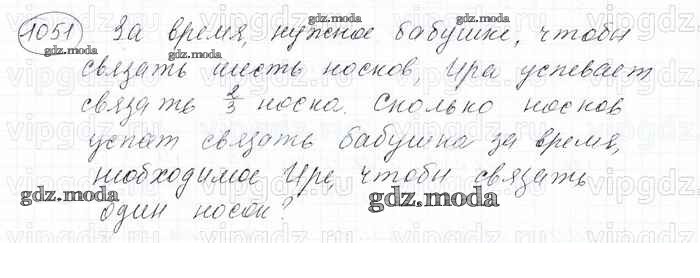 1051 За время, нужное бабушке, чтобы
связать шесть носков, Ира успевает
связать 2/3 носка. Сколько носков
успат связать бабушка за время,
необходимое Ире, чтобы связать
один носок?
gdz.moda
gdz.moda
gdz.moda
gdz.moda
gdz.moda
gdz.moda